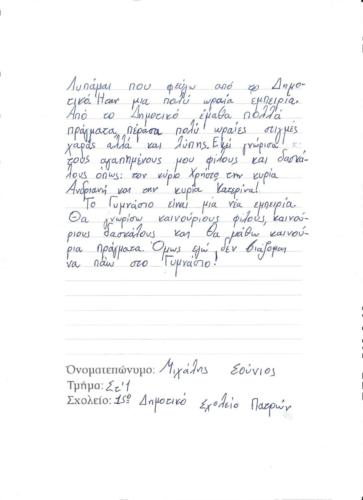 Λυπάμαι που φεύγω από το Δημο-
τικό. Ήταν μια πολύ ωραία εμπειρία.
Από το Δημοτικό έμαθα πολλά
πράγματα, πέρασα πολύ ωραίες στιγμές
χαράς αλλά και λύπης. Εκεί γνώρισα
τους αγαπημένους μου φίλους και δασκά-
λους όπως: τον κύριο Χρήστο, την κυρία
Ανδριανή και την κυρία Κατερίνα!
Το Γυμνάσιο είναι μία νέα εμπειρία.
Θα γνωρίσω καινούριους φίλους, καινού-
ριους δασκάλους και θα μάθω καινού-
ρια πράγματα. Όμως εγώ δεν βιάζομαι
να πάω στο Γυμνάσιο!
Όνοματεπώνυμο: Μιχάλης Σούνιος
Τμήμα: Στ'1
Σχολείο: 15ο Δημοτικό Σχολείο Πατρών